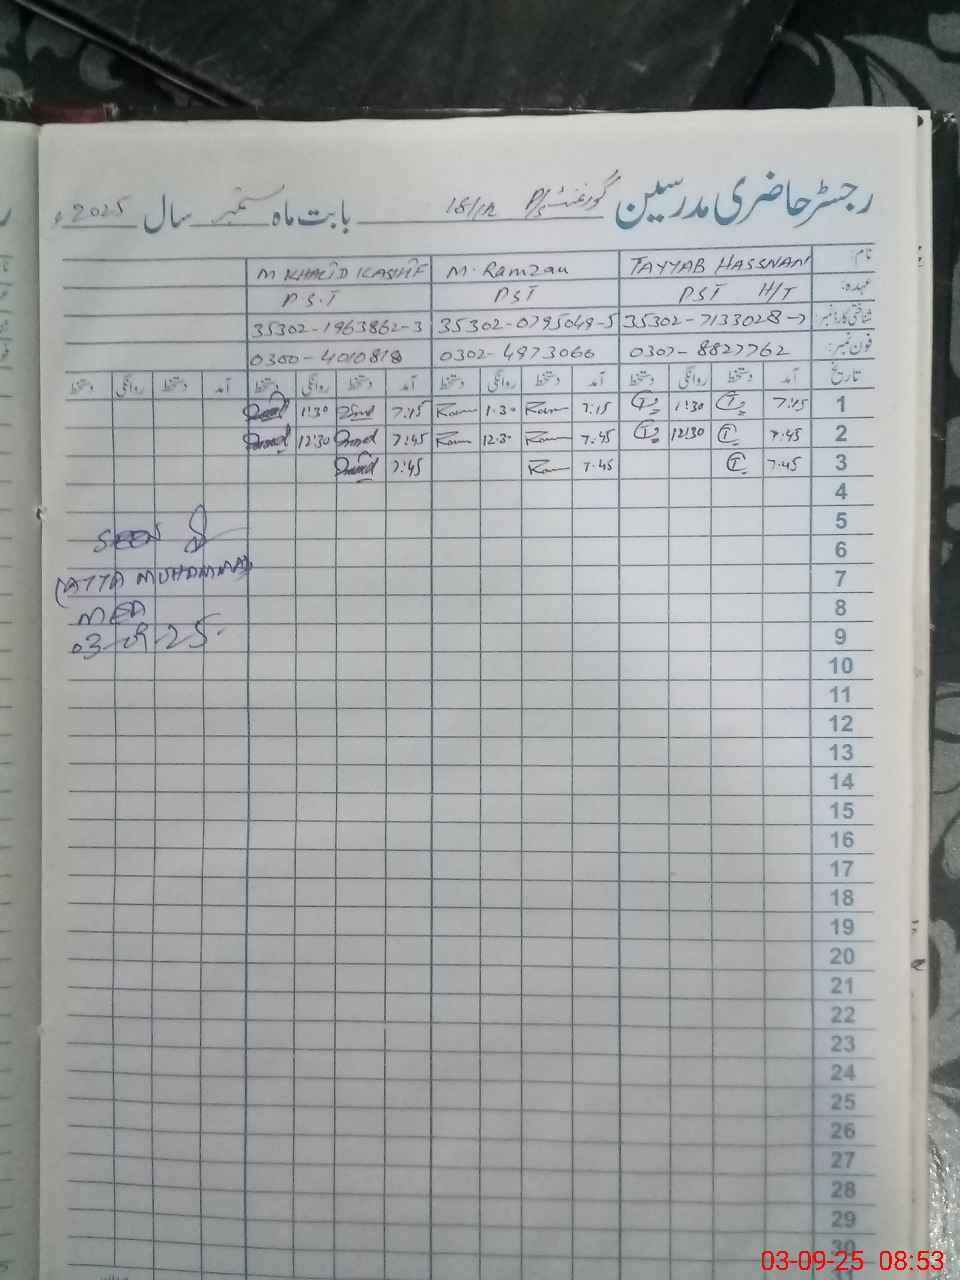 رجسٹر حاضری مدرسین گورنمنٹ P/S 18/1R بابت ماہ ستمبر سال 2025ء
نام: TAYYAB HASSNAN M. Ramzan M KHALID KASHIF
عہدہ: PST H/T PST P.S.T
شناختی کارڈ نمبر: 35302-7133028-7 35302-0795049-5 35302-1963862-3
فون نمبر: 0307-8827762 0302-4973066 0300-4010818
تاریخ آمد دستخط روانگی دستخط آمد دستخط روانگی دستخط آمد دستخط روانگی دستخط آمد دستخط روانگی دستخط
1 7:45 1:30 7:15 1:30 7:15 1:30
2 7:45 12:30 7:45 12:30 7:45 12:30
3 7:45 7:45 7:45
4
5
6 SEEN
7 (ATTA MUHAMMAD)
8 MEA
9 03-09-25
10
11
12
13
14
15
16
17
18
19
20
21
22
23
24
25
26
27
28
29
30
03-09-25 08:53